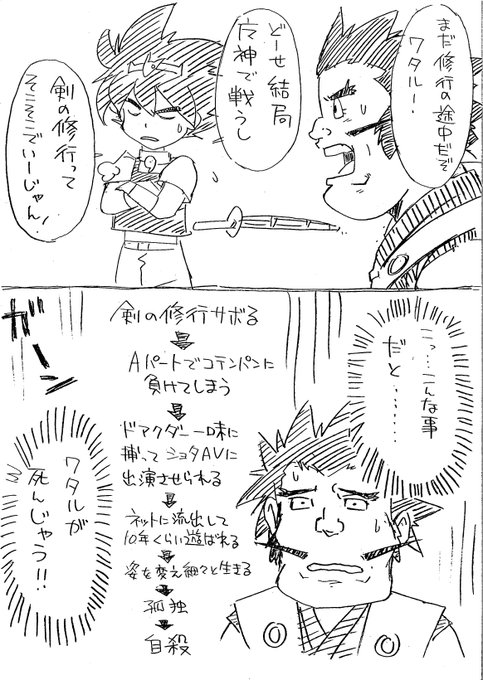 まだ修行の途中だぞ
ワタルー！
どーせ結局
魔神で戦うし
剣の修行って
そこそこでいーじゃん！
こっ…こんな事
だと……
剣の修行サボる
Aパートでコテンパンに
負けてしまう
ドアクダー一味に
捕ってショタAVに
出演させられる
ネットに流出して
10年くらい遊ばれる
姿を変え細々と生きる
孤独
自殺
ワタルが
死んじゃう!!
ガーン